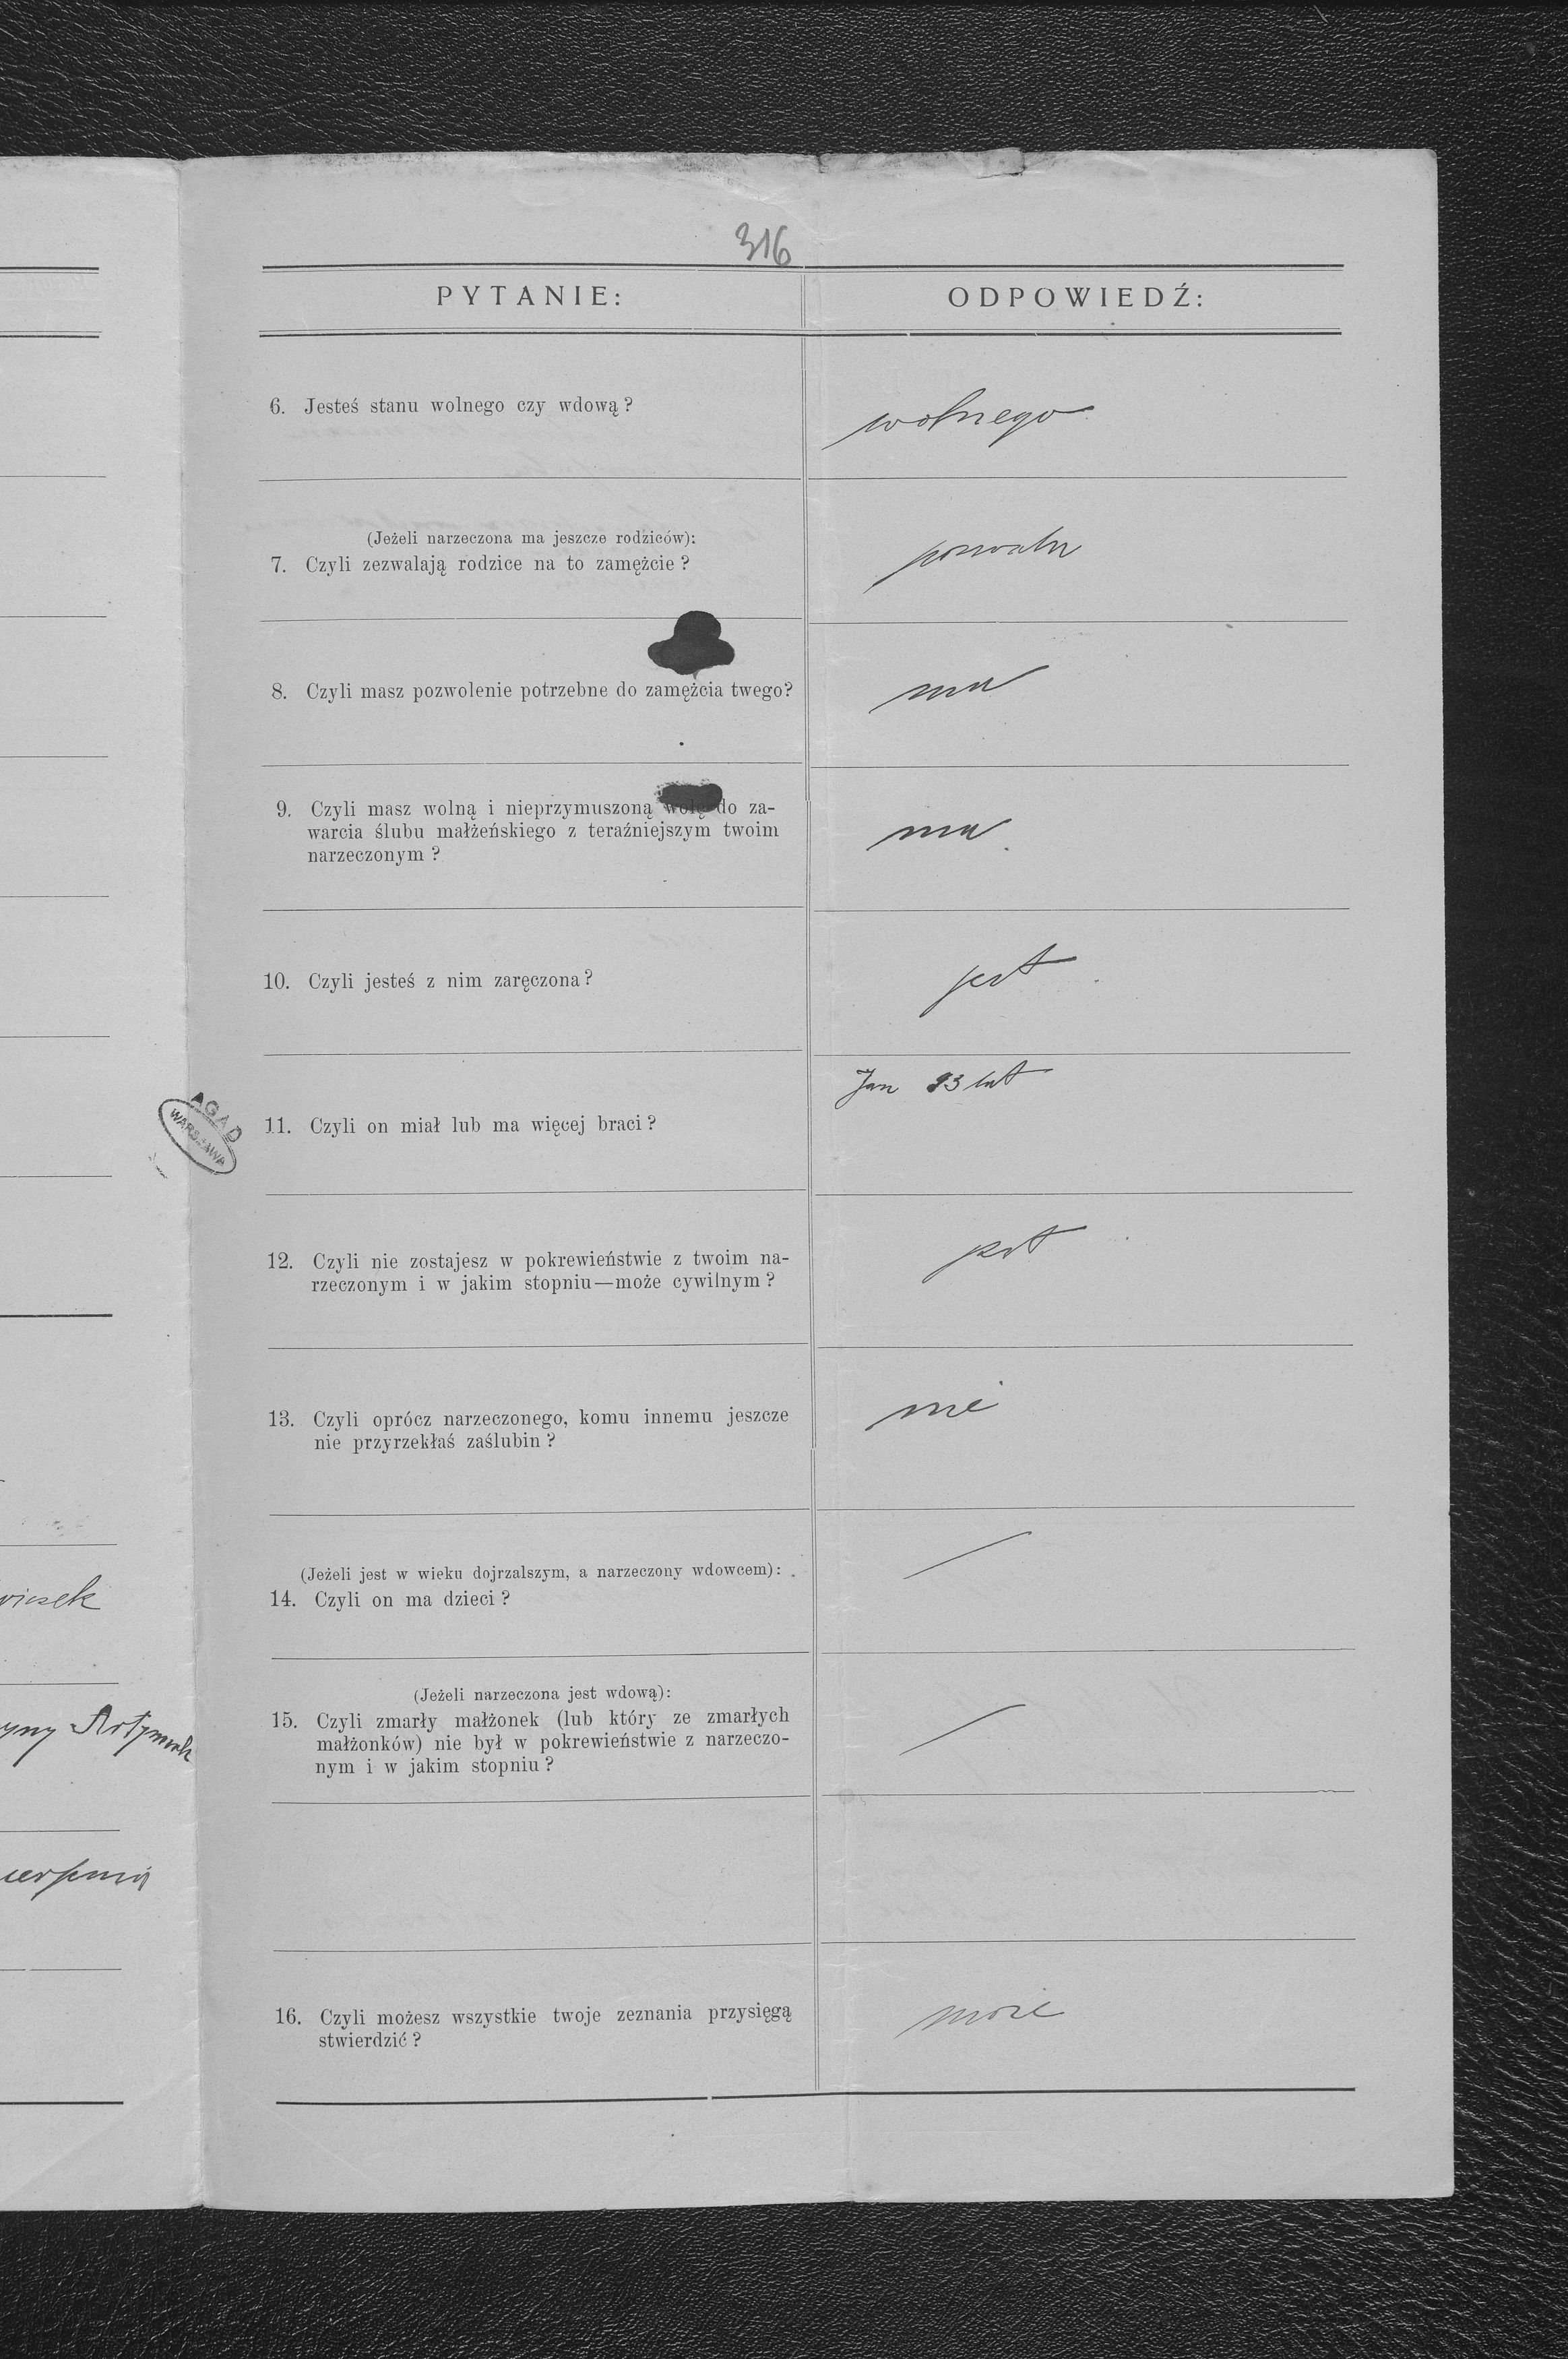 316
PYTANIE:
ODPOWIEDŹ:
6. Jesteś stanu wolnego czy wdową?
wolnego
(Jeżeli narzeczona ma jeszcze rodziców):
7. Czyli zezwalają rodzice na to zamężcie?
8. Czyli masz pozwolenie potrzebne do zamężcia twego?
ma
9. Czyli masz wolną i nieprzymuszoną wolę do za-
warcia ślubu małżeńskiego z teraźniejszym twoim
narzeczonym?
ma
10. Czyli jesteś z nim zaręczona?
jest
11. Czyli on miał lub ma więcej braci?
Jan 23 lat
AGAD
WARSZAWA
12. Czyli nie zostajesz w pokrewieństwie z twoim na-
rzeczonym i w jakim stopniu—może cywilnym?
jest
13. Czyli oprócz narzeczonego, komu innemu jeszcze
nie przyrzekłaś zaślubin?
nie
(Jeżeli jest w wieku dojrzalszym, a narzeczony wdowcem):
14. Czyli on ma dzieci?
(Jeżeli narzeczona jest wdową):
15. Czyli zmarły małżonek (lub który ze zmarłych
małżonków) nie był w pokrewieństwie z narzeczo-
nym i w jakim stopniu?
16. Czyli możesz wszystkie twoje zeznania przysięgą
stwierdzić?
może